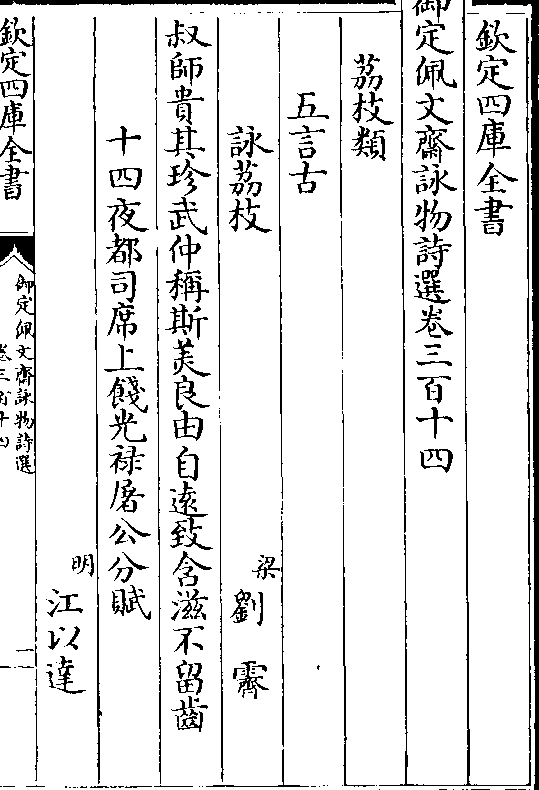 欽定四庫全書
御定佩文齋詠物詩選卷三百十四
荔枝類
五言古
詠荔枝 梁 劉霽
叔師貴其珍武仲稱斯美良由自遠致含滋不留齒
十四夜都司席上餞光禄屠公分賦
明 江以達
欽定四庫全書
御定佩文齋詠物詩選
卷三百十四
一